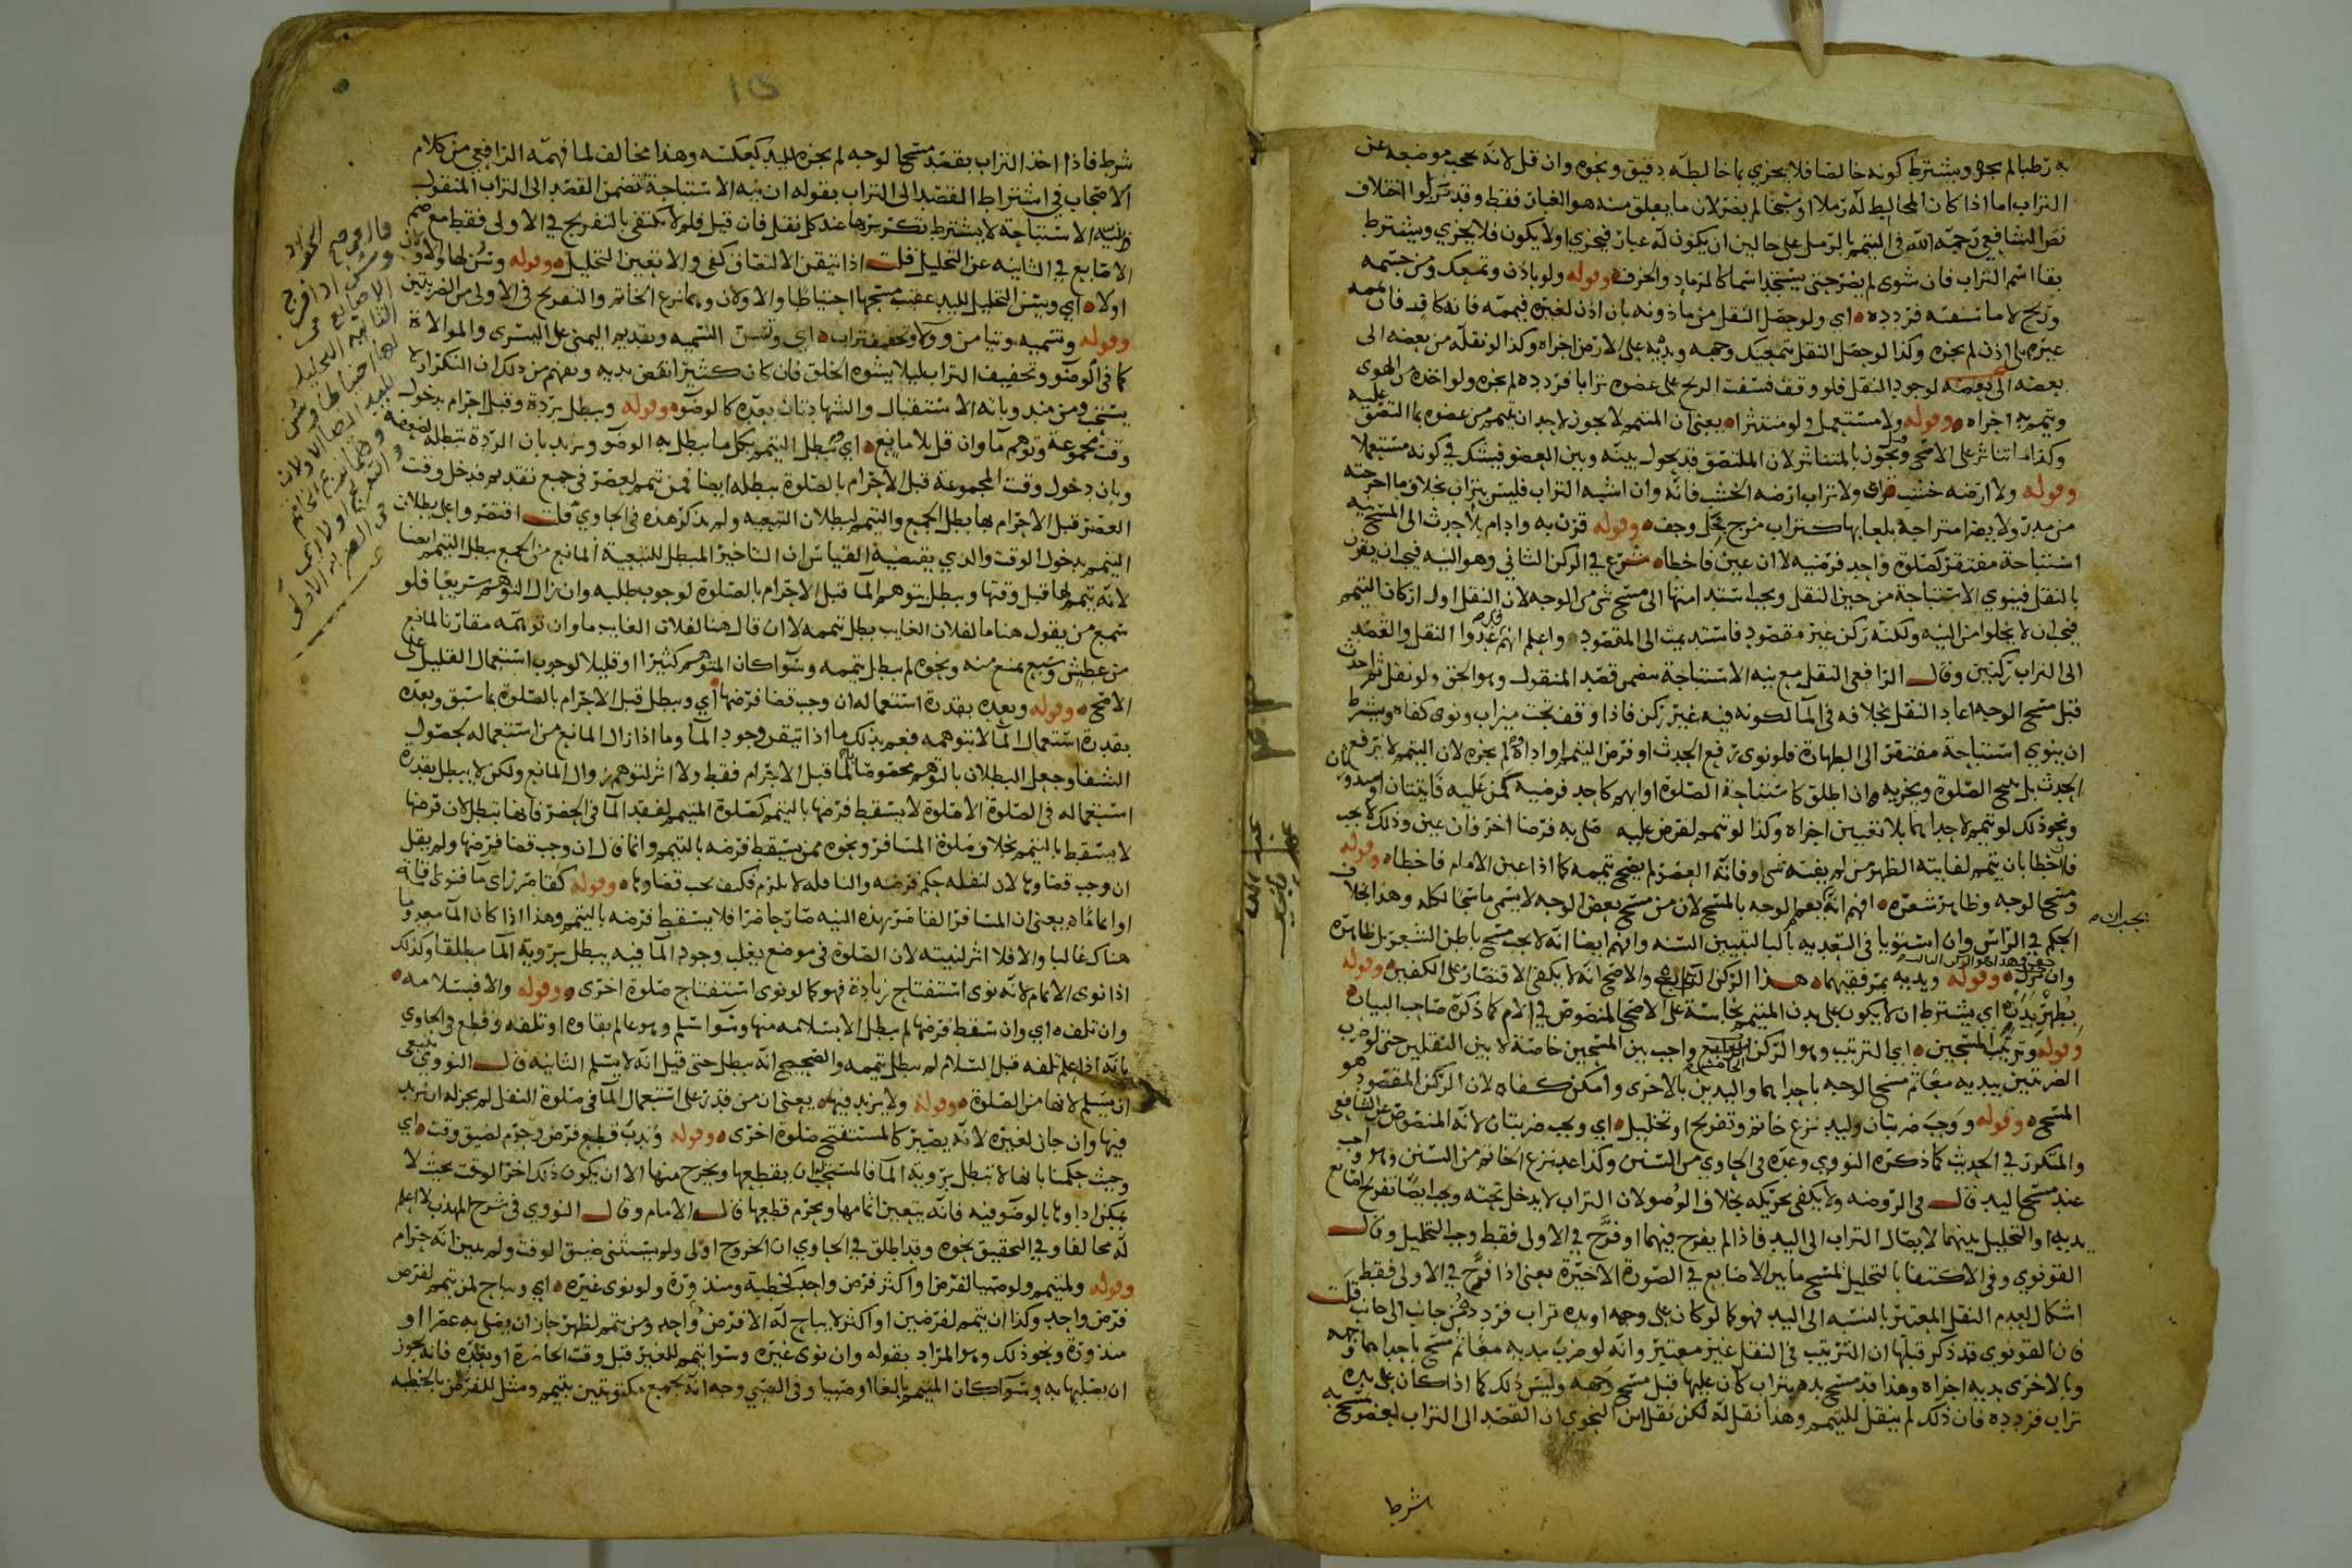 به رطبا لم يجزه ويشترط كونه خالصا فلا يجزي ما خالطه دقيق ونحوه وان قل لانه يحجب موضعه عن
التراب اما اذا كان المخالط له رملا او سحقا لم يضر لان ما يعلق منه هو الغبار فقط وقد نزلوا اختلاف
نص الشافعي رحمه الله في التيمم بالرمل على حالين ان يكون له غبار فيجزي او لا يكون فلا يجزي ويشترط
بقا اسم التراب فان شوى لم يضر حتى يستجد اسما كالرماد والخزف وقوله ولو باذن وتمعك ومن جسمه
وريح لا ما سفته فردده اي ولو حصل النقل من ماذونه بان اذن لغيره فيممه فانه كاف فان يممه
غيره بلا اذن لم يجزه وكذا لو حصل النقل بتمعيك وجهه ويديه على الارض اجزاه وكذا لو نقله من بعضه الى
بعضه لوجود النقل فلو وقف فسفت الريح على عضوه ترابا فردده لم يجزه ولو اخذه من الهوى
وتيمم به اجزاه وقوله ولا مستعمل ولو منتثرا يعني ان المتيمم لا يجوز لاحد ان يتيمم من عضوه بما التصق عليه
وكذا ما تناثر على الاصح وقيل يجوز بالمتناثر لان الملتصق قد يحول بينه وبين العضو فيشك في كونه مستعملا
وقوله ولا ارضه خشب ولا تراب ارضه الخشب فانه وان اشبه التراب فليس بتراب بخلاف ما اخرجته
من مدر ولا يضر امتزاجه بلعابها كتراب مزج بخل وجف وقوله قرن به وادام بلا حدث الى المسح نية
استباحة مفتقر كصلوة واحد فرضيه لا ان عين فاخطاه شرع في الركن الثاني وهو النيه فيجب ان يقرن
بالنقل فينوي الاستباحة من حين النقل ويجب استدامتها الى مسح شي من الوجه لان النقل اول اركان التيمم
فيجب ان لا يخلوا من النيه ولكنه ركن غير مقصود فاستديمت الى المقصود واعلم انهم عدوا النقل والقصد
الى التراب ركنين وقال الرافعي النقل مع نيه الاستباحة يتضمن قصد المنقول وهو الحق ولو نقل ثم احدث
قبل مسح الوجه اعاد النقل بخلافه في الما لكونه فيه غير ركن فاذا وقف تحت ميزاب ونوى كفاه ويشترط
ان ينوي استباحة مفتقر الى الطهارة فلو نوى رفع الحدث او فرض التيمم او اداه لم يجزه لان التيمم لا يرفع
الحدث بل يبيح الصلوة ويجزيه وان اطلق كاستباحة الصلوة او ابهم كاحد فرضيه كمن عليه فايتتان او منذورتان
ونحو ذلك لو تيمم لاحداهما بلا تعيين اجزاه وكذا لو تيمم لفرض عليه صلى به فرضا اخر فان عين وذلك لا يجب
فاخطا بان تيمم لفايتة الظهر من لم يفته شي او فاته العصر لم يصح تيممه كما اذا عين الامام فاخطا وقوله
ومسح الوجه وظاهر شعره افهم انه يعم الوجه بالمسح لان من مسح بعض الوجه لا يسمى ماسحا لكله وهذا بخلاف
الحكم في الراس وان استويا في التعديه بالبا لتبيين السنه وافهم ايضا انه لا يجب مسح باطن الشعر بل ظاهره
وان نزل وقوله ويديه بمرفقيهما هذا الركن الرابع والاصح انه لا يكفي الاقتصار على الكفين وقوله
بطهر بدن اي يشترط ان لا يكون على بدن المتيمم نجاسة على الاصح المنصوص في الام كما ذكره صاحب البيان
وقوله وترتب المسحين اي الترتيب وهو الركن الخامس واجب بين المسحين خاصة لا بين النقلين حتى لو ضرب
الضربتين بيديه معا ثم مسح الوجه باحداهما واليدين بالاخرى وامكن كفاه لان الركن المقصود هو
المسح وقوله ووجب ضربتان وليد نزع خاتم وتفريج او تخليل اي ويجب ضربتان لانه المنصوص عن الشافعي
والمتكرر في الحديث كما ذكره النووي وعده في الحاوي من السنن وكذا عد نزع الخاتم من السنن وهو واجب
عند مسح اليد قال في الروضه ولا يكفي تحريكه بخلاف الوضو لان التراب لا يدخل تحته ويجب ايضا تفريج اصابع
يديه او التخليل بينهما لايصال التراب الى اليد فاذا لم يفرج فيهما او فرج في الاولى فقط وجب التخليل وقال
القونوي وفي الاكتفا بالتخليل لمسح ما بين الاصابع في الصورة الاخيرة يعني اذا فرج في الاولى فقط
اشكال لعدم النقل المعتبر بالنسبه الى اليد فهو كما لو كان على وجهه او يده تراب فردده من جانب الى جانب قلت
فان القونوي قد ذكر قبلها ان الترتيب في النقل غير معتبر وانه لو ضرب بيديه معا ثم مسح باحداهما وجهه
وبالاخرى يديه اجزاه وهذا قد مسح يده بتراب كان عليها قبل مسح وجهه وليس ذلك كما اذا كان على يده
تراب فردده فان ذلك لم ينقل للتيمم وهذا نقل له لكن نقل ابن النحوي ان القصد الى التراب لعضو مسح به
شرط
شرط فاذا اخذ التراب بقصد مسح الوجه لم يجزه لليد كعكسه وهذا مخالف لما فهمه الرافعي من كلام
الاصحاب في اشتراط القصد الى التراب بقوله ان نيه الاستباحة تضمن القصد الى التراب المنقول
ونيه الاستباحة لا يشترط تكررها عند كل نقل فان قيل فلم لا يكتفى بالتفريج في الاولى فقط مع ضم
الاصابع في الثانيه عن التخليل قلت اذا تيقن الالتصاق كفى والا تعين التخليل وقوله وسن لها ولاولان
اولا اي ويسن التخليل لليد عقب مسحها احتياطا والاولان وهما نزع الخاتم والتفريج في الاولى من الضربتين
وقوله وتسميه وتيامن وولا وتخفيف تراب اي وتسن التسميه وتقديم اليمنى على اليسرى والموالاة
كما في الوضو وتخفيف التراب ليلا يشوه الخلق فان كان كثيرا نفض يديه ويفهم من ذلك ان التكرار لا
يستحب ومن مندوباته الاستقبال والشهادتان بعده كالوضو وقوله ويبطل بردة وقبل احرام بدخول
وقت مجموعة وتوهم ما وان قل بلا مانع اي يبطل التيمم بكل ما يبطل به الوضو ويزيد بان الردة تبطله
وبان دخول وقت المجموعة قبل الاحرام بالصلوة يبطله ايضا فمن تيمم لعصر في جمع تقديم فدخل وقت
العصر قبل الاحرام بها بطل الجمع والتيمم لبطلان التبعيه ولم يذكر هذه في الحاوي قلت اقتصروا على بطلان
التيمم بدخول الوقت والذي يقتضيه القياس ان التاخير المبطل للتبعية المانع من الجمع يبطل التيمم ايضا
لانه تيمم لها قبل وقتها ويبطل بتوهم الما قبل الاحرام بالصلوة لوجوب طلبه وان زال التوهم سريعا فلو
سمع من يقول هنا ما لفلان الغايب بطل تيممه لا ان قال هنا لفلان الغايب ما وان توهمه مقارنا لمانع
من عطش وسبع يمنع منه ونحوه لم يبطل تيممه وسوا كان المتوهم كثيرا او قليلا لوجوب استعمال القليل على
الاصح وقوله وبعده بقدرة استعماله ان وجب قضا فرضها اي ويبطل قبل الاحرام بالصلوة بما سبق وبعده
بقدرة استعمال الما لا بتوهمه فعم بذلك ما اذا تيقن وجود الما وما اذا زال المانع من استعماله بحصول
الشفا وجعل البطلان بالتوهم مخصوصا بما قبل الاحرام فقط ولا اثر لتوهم زوال المانع ولكن لا يبطل بقدرة
استعماله في الصلوة الا صلوة لا يسقط فرضها بالتيمم كصلوة المتيمم لفقد الما في الحضر فانها تبطل لان فرضها
لا يسقط بالتيمم بخلاف صلوة المسافر ونحوه ممن يسقط فرضه بالتيمم وانما قال ان وجب قضا فرضها ولم يقل
ان وجب قضاوها لان لنفله حكم فرضه والنافله لا يلزم فكيف يجب قضاوها وقوله كقاصر راى ما فنوى اقامة
او اتماما يعني ان المسافر القاصر بهذه النيه صار حاضرا فلا يسقط فرضه بالتيمم وهذا اذا كان الما معدوما
هناك غالبا والا فلا اثر لنيته لان الصلوة في موضع يغلب وجود الما فيه يبطل برويه الما مطلقا وكذلك
اذا نوى الاتمام لانه نوى استفتاح زيادة فهو كما لو نوى استفتاح صلوة اخرى وقوله والا فبسلامه
وان تلف اي وان سقط فرضها لم يبطل الا بسلامه منها وسوا سلم وهو عالم بقاوه او تلفه وقطع في الحاوي
بانه اذا علم تلفه قبل السلام لم يبطل تيممه والصحيح انه يبطل حتى قيل انه لا يسلم الثانيه قال النووي ينبغي
ان يسلم لانها من الصلوة وقوله ولا يزيد فيها يعني ان من قدر على استعمال الما في صلوة النفل لم يجز له ان يزيد
فيها وان جاز لغيره لانه يصير كالمستفتح صلوة اخرى وقوله وندب قطع فرض وحرم لضيق وقت اي
وحيث حكمنا بانها لا تبطل برويه الما فالمستحب ان يقطعها ويخرج منها الا ان يكون ذلك اخر الوقت بحيث لا
يمكن اداوها بالوضو فيه فانه يتعين اتمامها ويحرم قطعها قاله الامام وقال النووي في شرح المهذب لا اعلم
له مخالفا وفي التحقيق نحوه وقد اطلق في الحاوي ان الخروج اولى ولم يستثن ضيق الوقت ولم يبين انه حرام
وقوله ولمتيمم ولو صبيا لفرض او اكثر فرض واحد كخطبة ومنذورة ولو نوى غيره اي ويباح لمن تيمم لفرض
فرض واحد وكذا ان تيمم لفرضين او اكثر لا يباح له الا فرض واحد ومن تيمم لظهر جاز ان يصلي به عصرا او
منذورة ونحو ذلك وهو المراد بقوله وان نوى غيره وسوا تيمم للغير قبل وقت الحاضرة او بعده فانه يجوز
ان يصليها به وسوا كان المتيمم بالغا او صبيا وفي الصبي وجه انه يجمع مكتوبتين بتيمم ومثل للفرض بالخطبه